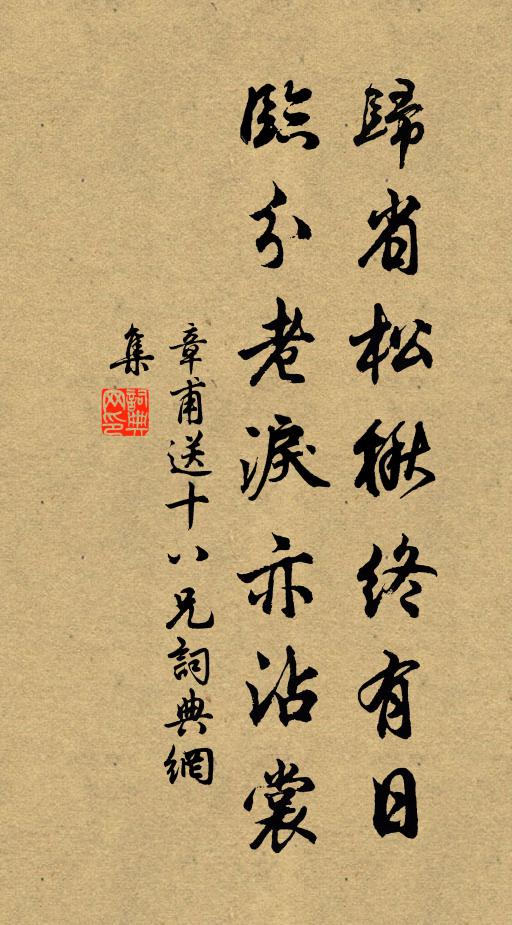 歸省松楸終有日
臨分老淚亦沾裳
章甫送十八兄詞典網
集
詞典網印